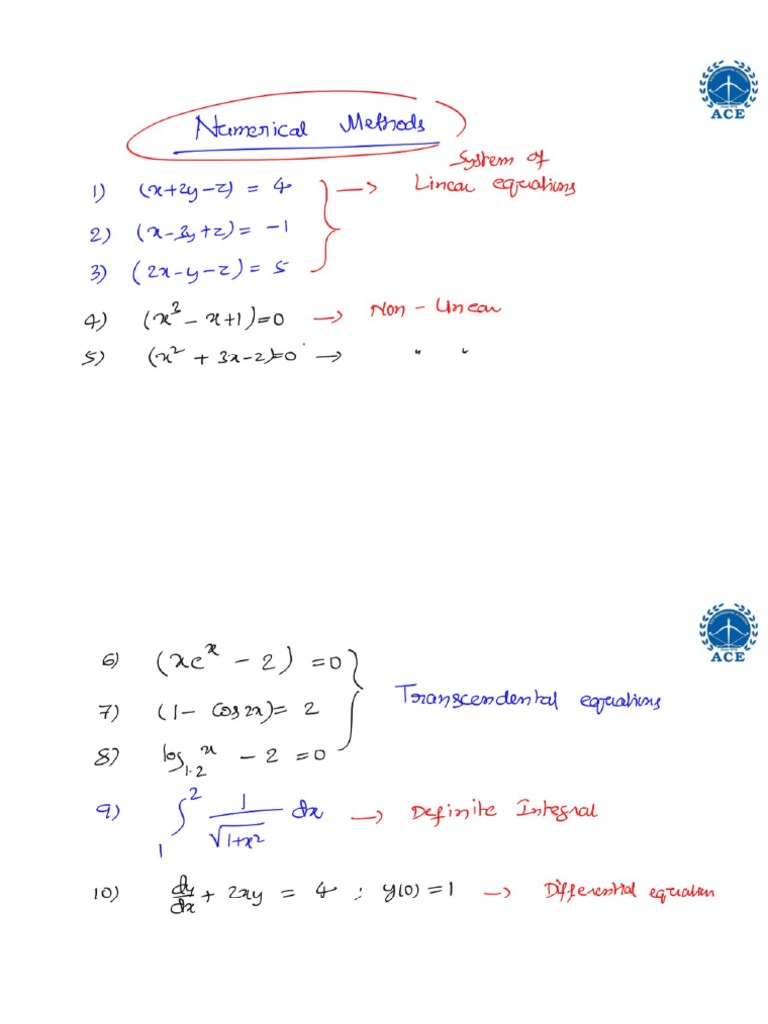 ACE
Numerical Methods
System of
1) (x+2y-z) = 4 → Linear equations
2) (x-3y+z) = -1
3) (2x-y-z) = 5
4) (x³ - x+1)=0 → Non-Linear
5) (x² + 3x-2)=0 → " "
ACE
6) (xeˣ - 2) = 0
7) (1- cos2x)= 2 Transcendental equations
8) log₁.₂ˣ - 2 = 0
9) ∫₁² 1/√(1+x²) dx → Definite Integral
10) dy/dx + 2xy = 4 ; y(0) = 1 → Differential equation